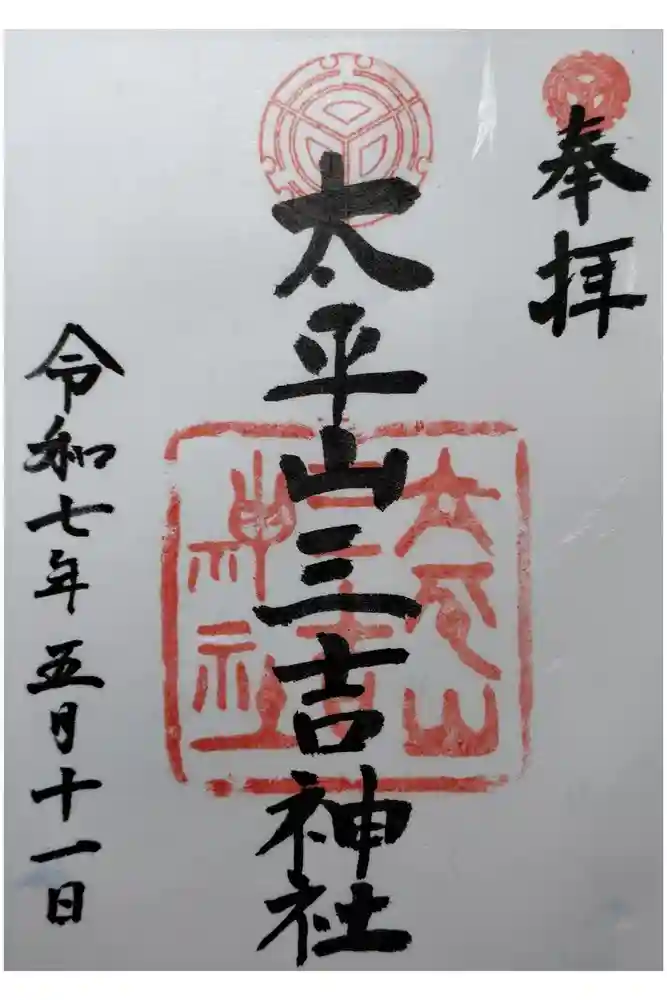 奉拝
太平山三吉神社
太平山
三吉
神社
令和七年五月十一日